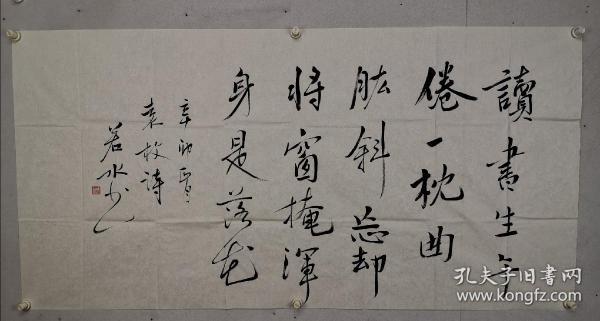 讀書生午
倦一枕曲
肱斜忘却
將窗掩渾
身是落花
辛卯
袁枚詩
若水
孔夫子旧书网
www.kongfz.com